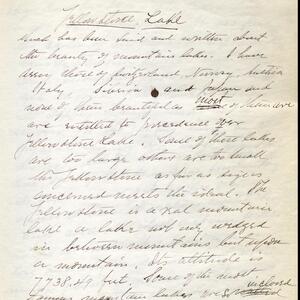 Yellowstone Lake
Much has been said and written about
the beauty of mountain lakes. I have
seen those of Switzerland, Norway, Austria
Italy, and Japan and
none of them beautiful as most of them are
are entitled to precedence over
Yellowstone Lake. Some of those lakes
are too large others are too small
the Yellowstone as far as size is
concerned meets the ideal. The
Yellowstone is a real mountain
lake a lake not only wedged
in between mountains but upon
a mountain. Its altitude is
7738.49 feet. Some of the most
famous mountain lakes, inclosed